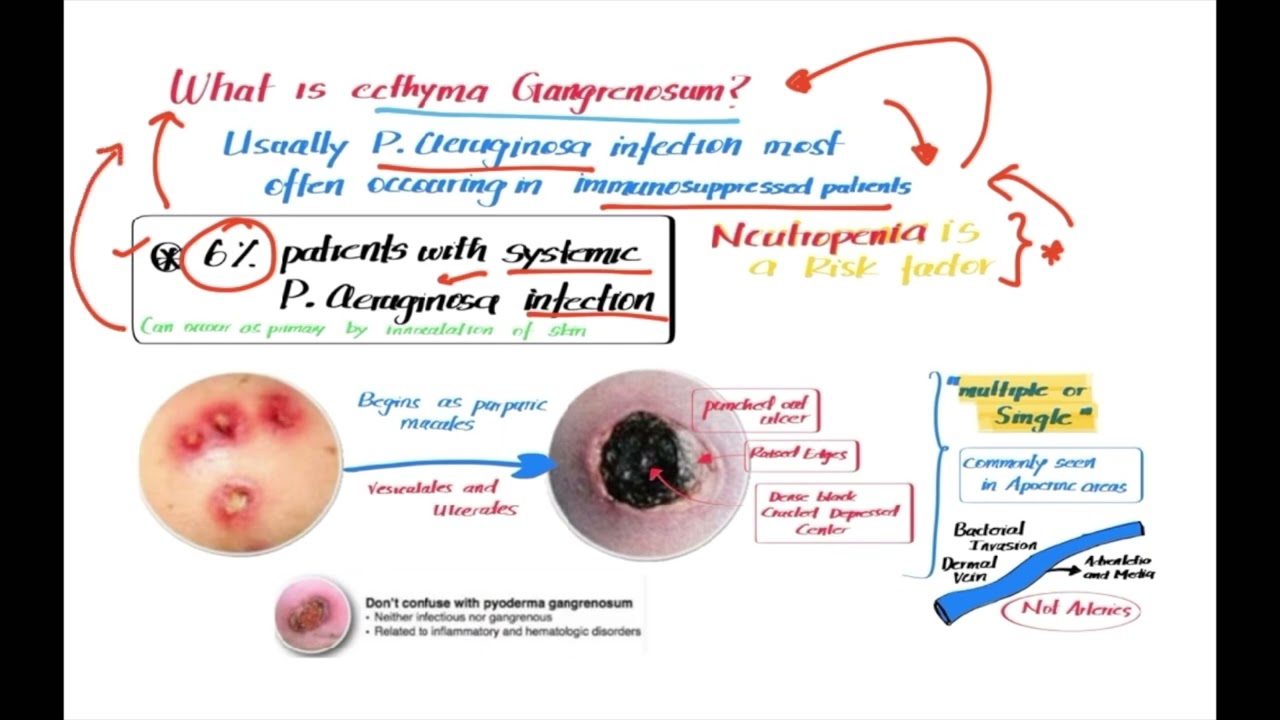 What is ecthyma Gangrenosum?
Usually P. Aeruginosa infection most
often occuring in immunosuppressed patients
6% patients with systemic
P. Aeruginosa infection
Can occur as primary by innoculation of skin
Neutropenia is
a Risk factor
Begins as purpuric
macules
Vesiculates and
Ulcerates
punched out
ulcer
Raised Edges
Dense black
Cracked Depressed
Center
"multiple or
Single"
commonly seen
in Apocrine areas
Bacterial
Invasion
Dermal
Vein
Adventetia
and Media
Not Arteries
Don't confuse with pyoderma gangrenosum
• Neither infectious nor gangrenous
• Related to inflammatory and hematologic disorders